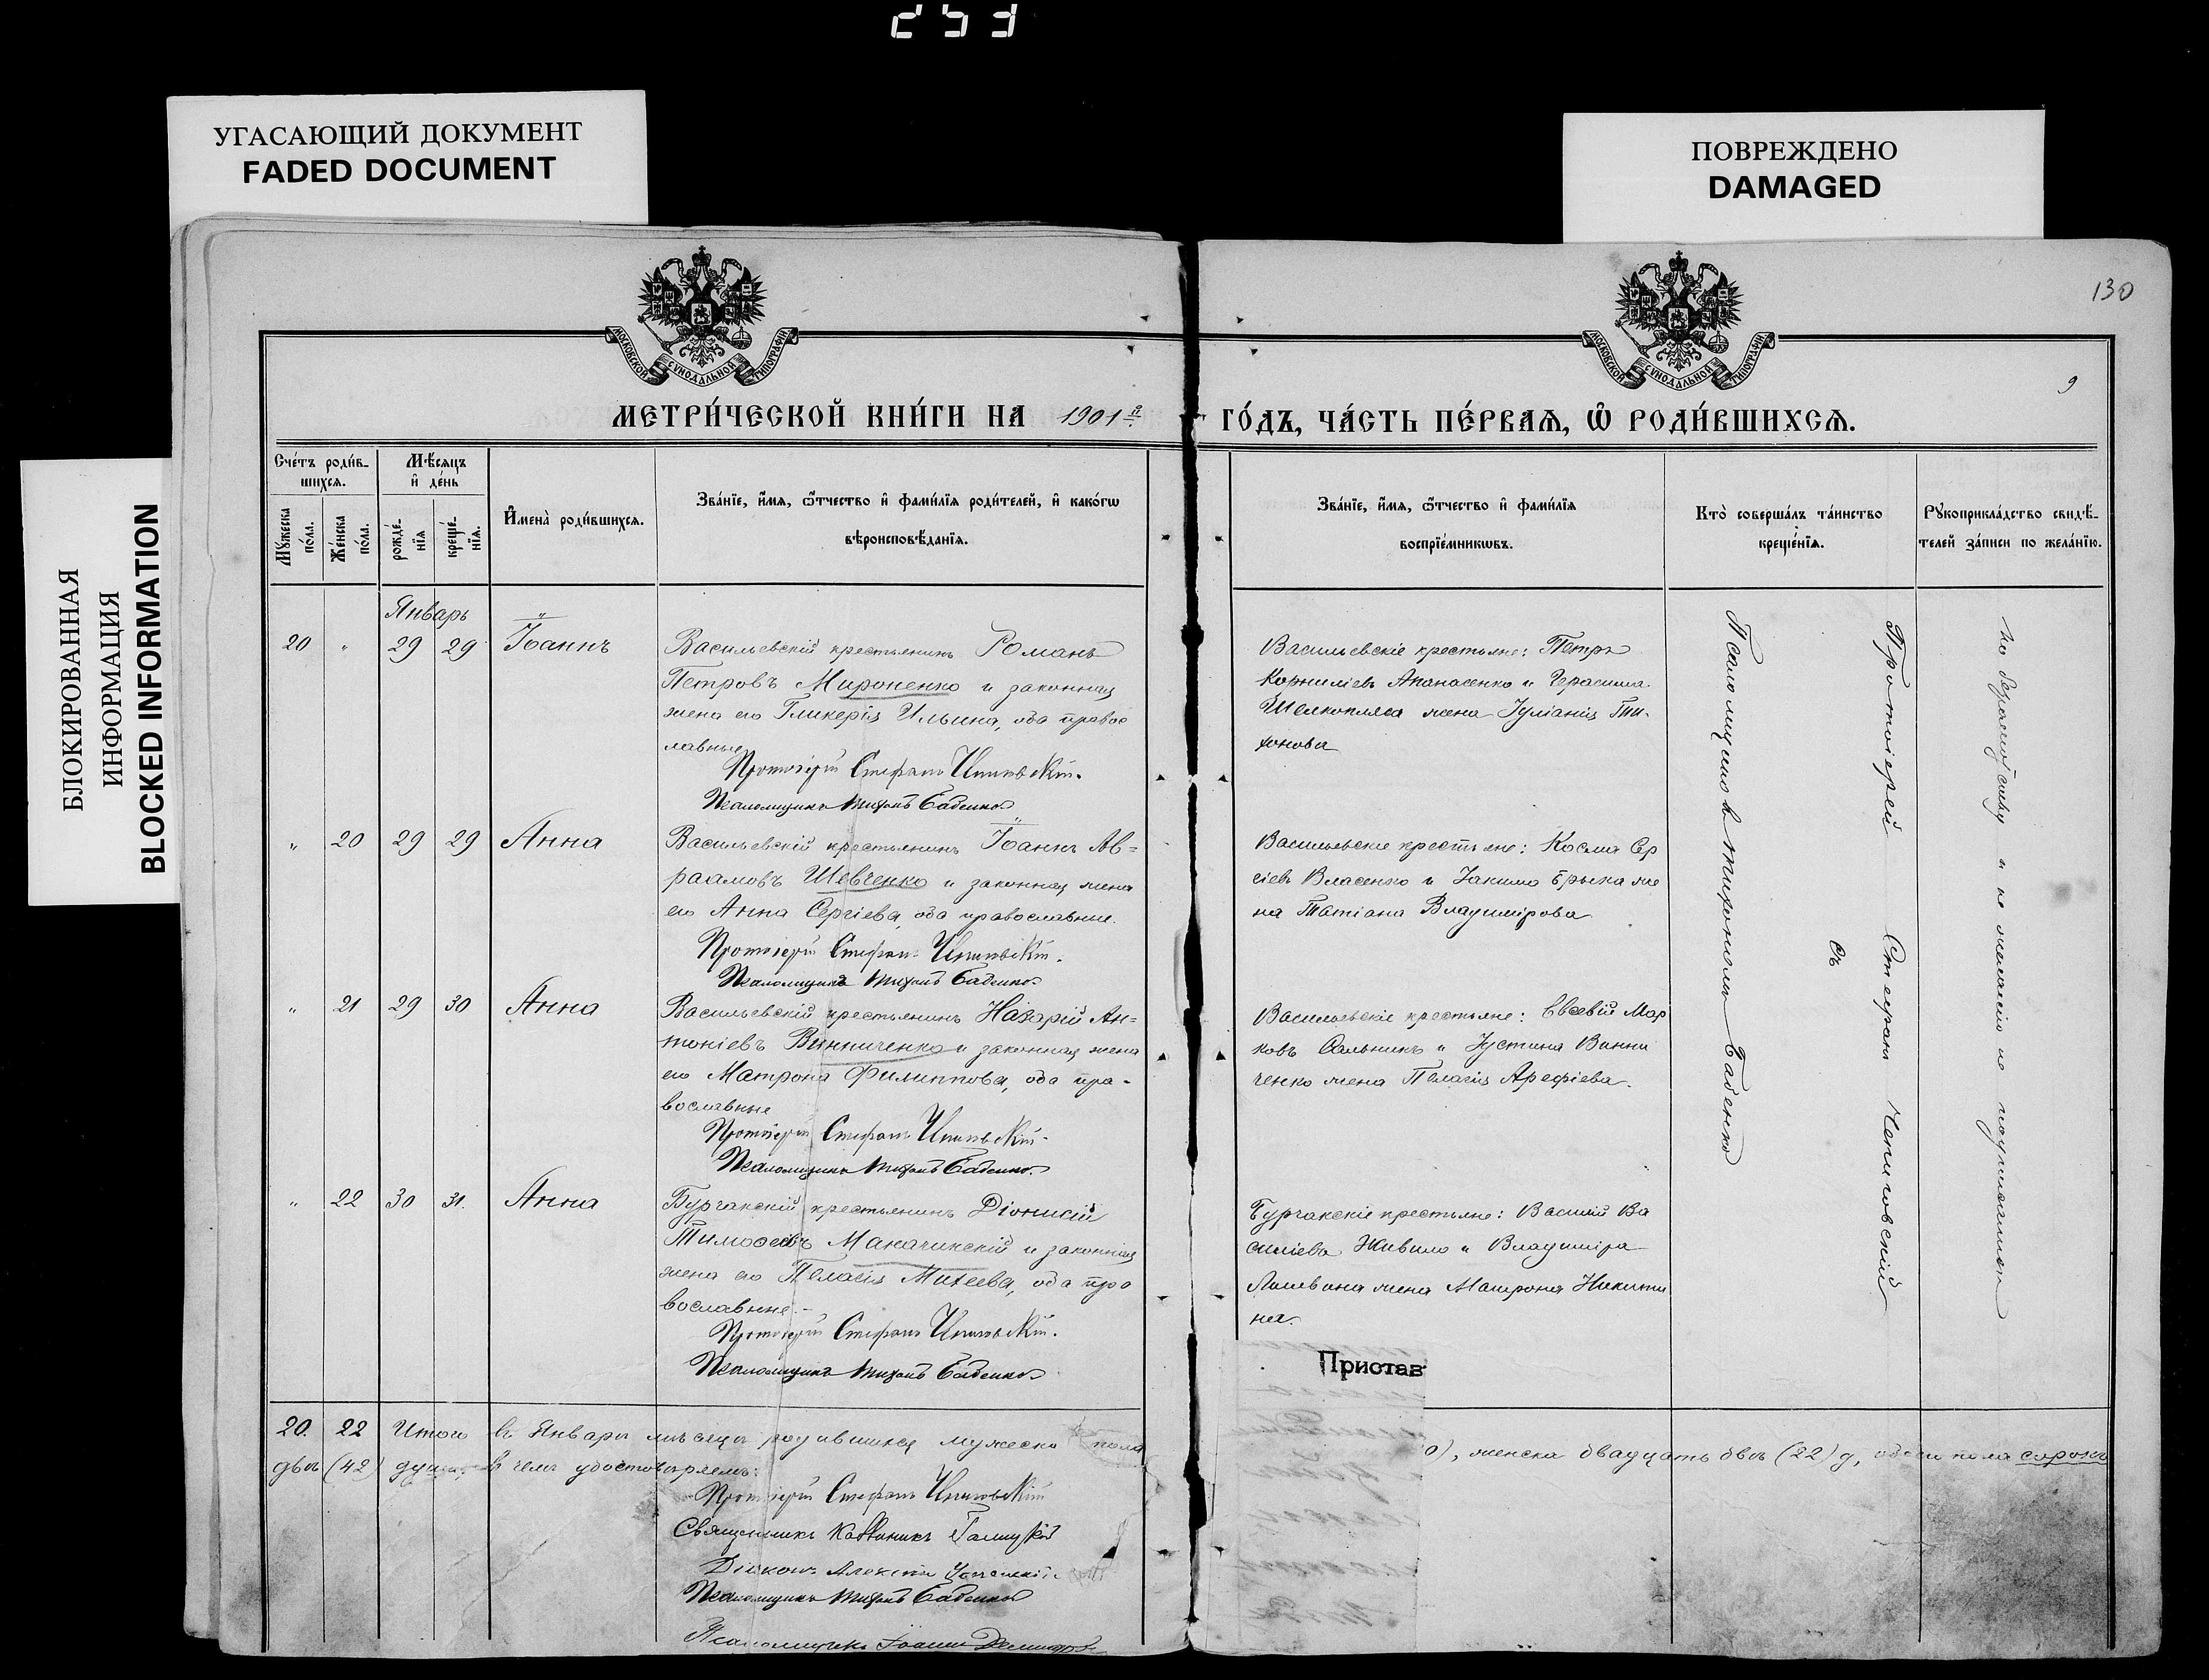 253
УГАСАЮЩИЙ ДОКУМЕНТ
FADED DOCUMENT
ПОВРЕЖДЕНО
DAMAGED
БЛОКИРОВАННАЯ
ИНФОРМАЦИЯ
BLOCKED INFORMATION
МОСКОВСКОЙ СУНОДАЛЬНОЙ ТИПОГРАФІИ
МОСКОВСКОЙ СУНОДАЛЬНОЙ ТИПОГРАФІИ
130
9
МЕТРИ́ЧЕСКОЙ КНИ́ГИ НА 1901й ГО́ДЪ, ЧА́СТЬ ПЕ́РВАѦ, Ѡ҆ РОДИ́ВШИХСѦ.
Сче́тъ роди́в-
шихсѧ.
Мѣ́сѧцъ
и҆ де́нь
Мꙋ́жеска
по́ла.
Же́нска
по́ла.
рожде́-
нїѧ
креще́-
нїѧ.
И҆мена̀ роди́вшихсѧ.
Зва́нїе, и҆́мѧ, ѻ҆́тчество и҆ фами́лїѧ роди́телей, и҆ како́гѡ
вѣроисповѣ́данїѧ.
Зва́нїе, и҆́мѧ, ѻ҆́тчество и҆ фами́лїѧ
воспрїе́мникѡвъ.
Кто̀ соверша́лъ та́инство
креще́нїѧ.
Рꙋкоприкла́дство свидѣ́-
телей за́писи по жела́нїю.
Январь
20 " 29 29 Іоаннъ
Васильевскій крестьянинъ Романъ
Петровъ Мироненко и законная
жена его Гликерія Ильина, оба право
лавные
Протоіерей Стефанъ
Псаломщикъ Тихонъ Бабенко
Васильевскіе крестьяне: Петръ
Корниліевъ Апанасенко и Герасима
Шелкопляса жена Іуліанія Ти-
хонова
" 20 29 29 Анна
Васильевскій крестьянинъ Іоаннъ Ав=
раамовъ Шевченко и законная жена
его Анна Сергіева, оба православные.
Протоіерей Стефанъ
Псаломщикъ Тихонъ Бабенко
Васильевскіе крестьяне: Косма Сер
гіевъ Власенко и Іакима Брыка же
на Татіана Владимірова
" 21 29 30 Анна
Васильевскій крестьянинъ Назарій Ан=
тоніевъ Винниченко и законная жена
его Матрона Филиппова, оба пра-
вославные
Протоіерей Стефанъ
Псаломщикъ Тихонъ Бабенко
Васильевскіе крестьяне: Евсевій Мар
ковъ Сальникъ и Іустина Винни
ченко жена Пелагія Арефіева.
" 22 30 31. Анна
Бурчакскій крестьянинъ Діонисій
Тимоѳеевъ Маначинскій и законная
жена его Пелагія Михеева, оба пра
вославные.
Протоіерей Стефанъ
Псаломщикъ Тихонъ Бабенко
Бурчакскіе крестьяне: Василій Ва
силіевъ Живило и Владиміра
жена Матрона Никити
на.
Протоіерей Стефанъ
съ
Псаломщикомъ Тихономъ Бабенко
Пристав
20. 22 Итого въ Январѣ мѣсяцѣ родившихся мужеска пола
0), женска двадцать двѣ (22) д, обоего пола сорокъ
двѣ (42) души, въ чемъ удостовѣряемъ:
Протоіерей Стефанъ
Священникъ
Діаконъ Алексій
Псаломщикъ Тихонъ Бабенко
Псаломщикъ Іоаннъ